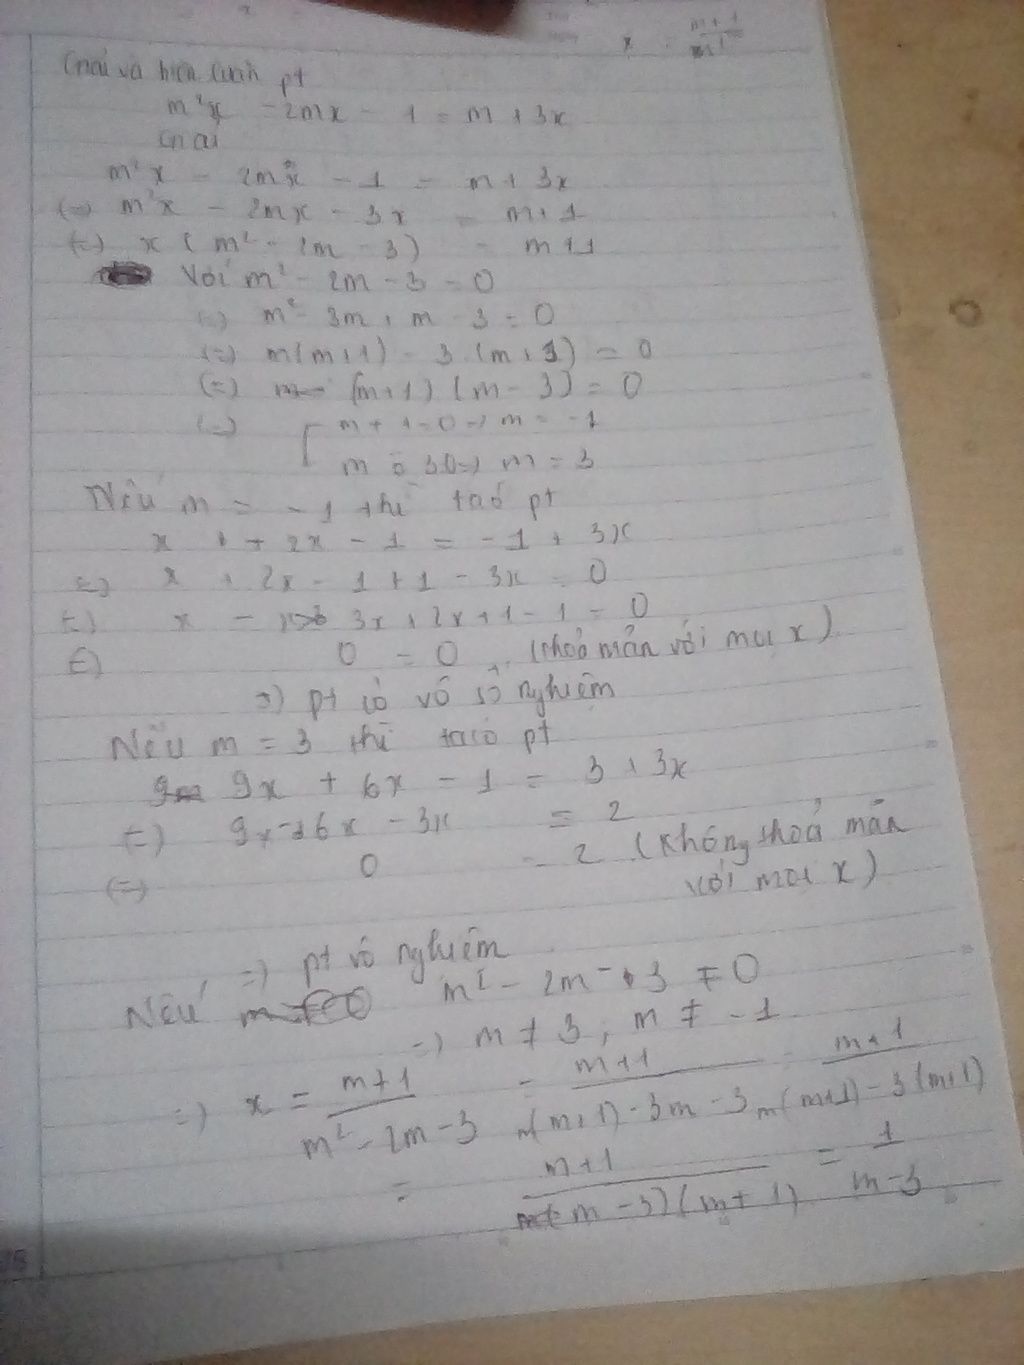 x . m+1
Giải và biện luận pt
m²x - 2mx - 1 = m + 3x
Giải
m²x - 2mx - 1 = m + 3x
(=) m²x - 2mx - 3x = m+1
(=) x (m² - 2m - 3) = m+1
Với m² - 2m - 3 = 0
(=) m² - 3m + m - 3 = 0
(=) m(m+1) - 3.(m+1) = 0
(=) (m+1)(m-3) = 0
(=) [ m + 1 = 0 => m = -1
m = 3 => m = 3
Nếu m = -1 thì ta có pt
x + 2x - 1 = -1 + 3x
(=) x + 2x - 1 + 1 - 3x = 0
(=) x - 3x + 2x + 1 - 1 = 0
(=) 0 = 0 (thoả mãn với mọi x)
=) pt có vô số nghiệm
Nếu m = 3 thì ta có pt
9x + 6x - 1 = 3 + 3x
(=) 9x - 6x - 3x = 2
(=) 0 = 2 (không thoả mãn
với mọi x)
=) pt vô nghiệm
Nếu m² - 2m - 3 ≠ 0
=) m ≠ 3 ; m ≠ -1
=) x = m+1 / m² - 2m - 3 = m+1 / m(m+1) - 3m - 3 = m+1 / m(m+1) - 3(m+1)
= m+1 / (m-3)(m+1) = 1 / m-3